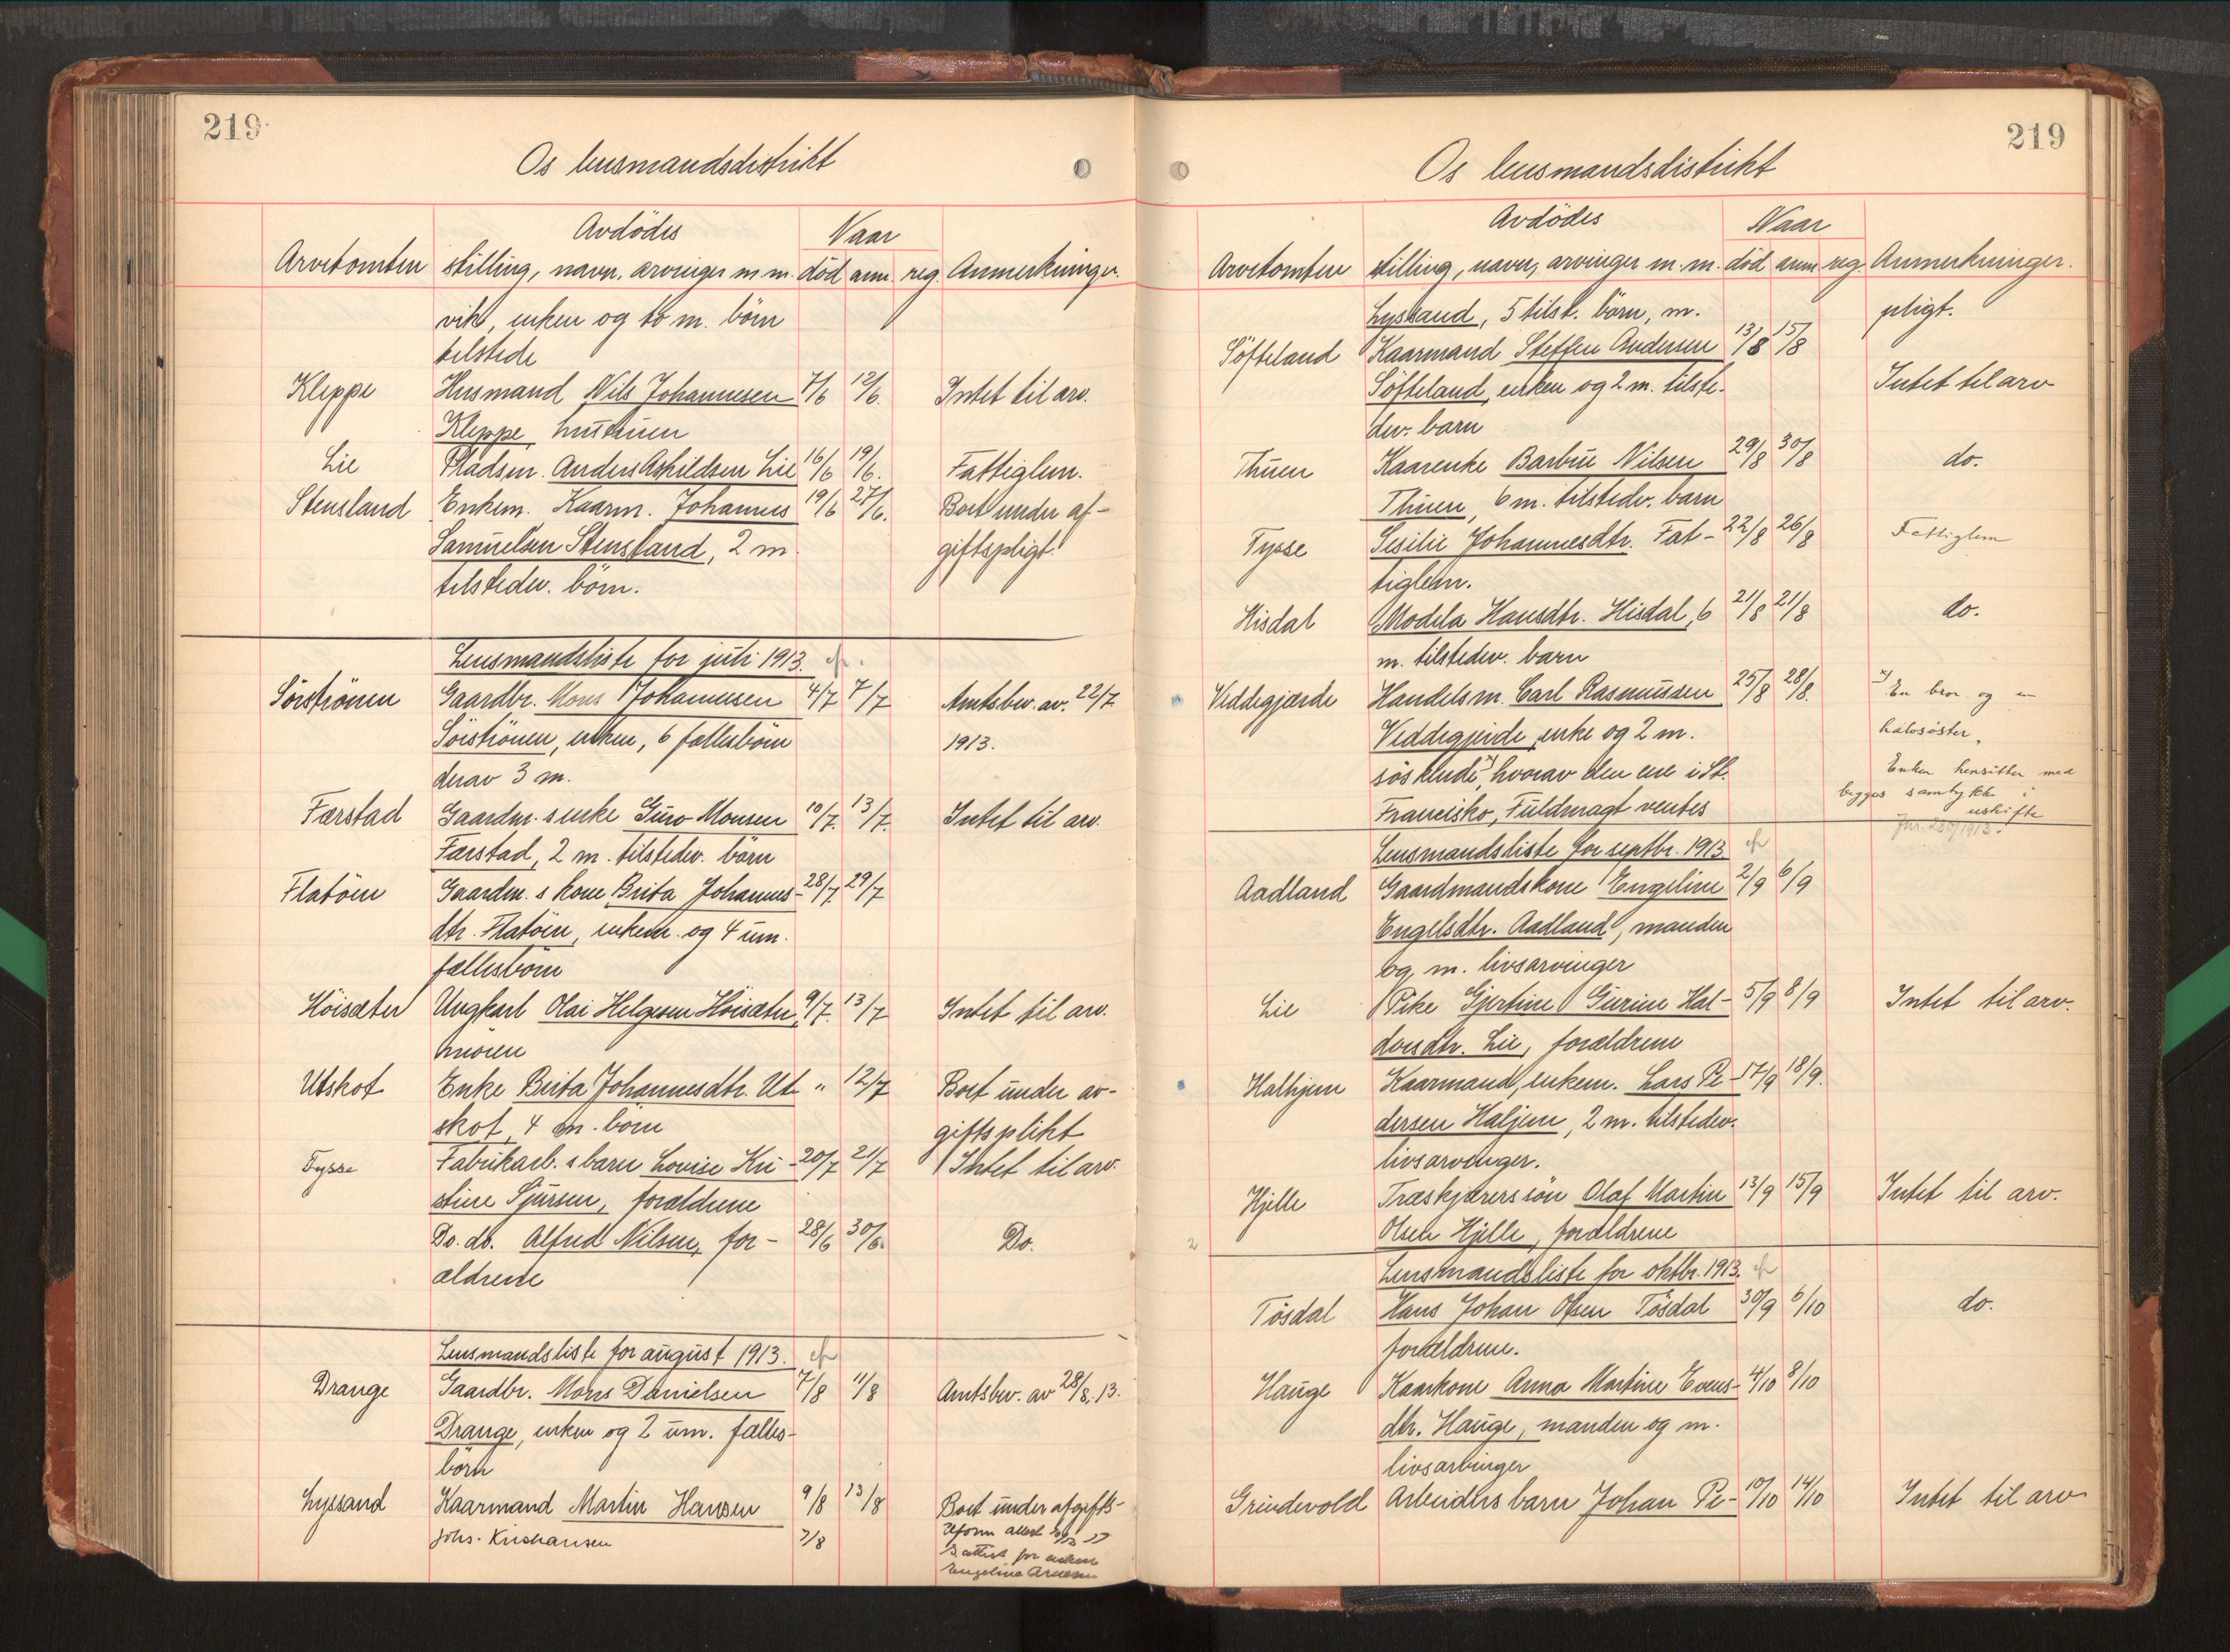 219
Os lensmandsdistrikt
Avdödes Naar
Arvetomten stilling, navn, arvinger m.m. död anm. reg. Anmerkninger.
vik, enken og to m. börn
tilstede
Kleppe Husmand Nils Johannesen 7/6 12/6. Intet til arv.
Kleppe, hustruen
Lie Pladsm. Anders Askildsen Lie 16/6 19/6. Fattiglem.
Stensland Enkem. Kaarm. Johannes 19/6 27/6. Boet under af-
Samuelsen Stensland, 2 m. giftspligt.
tilstedev. börn.
Lensmandsliste for juli 1913.
Sörströnen Gaardbr. Mons Johannesen 4/7 7/7 Amtsbev. av. 22/7
Sörströnen, enken, 6 fællesbörn 1913.
derav 3 m.
Færstad Gaardm.s enke Guro Monsen 10/7. 13/7. Intet til arv.
Færstad, 2 m. tilstedev. börn
Flatöen Gaardm.s kone Brita Johannes- 28/7 29/7
dtr. Flatöen, enkem. og 4 um.
fællesbörn
Höisæter Ungkarl Olai Helgesen Höisæter, 9/7. 13/7 Intet til arv.
moren
Utskot Enke Brita Johannesdtr. Ut- " 12/7 Boet under av-
skot, 4 m. börn giftsplikt
Tysse Fabrikarb.s barn Lovise Kri- 20/7 21/7 Intet til arv.
stine Sjursen, forældrene
Do. do. Alfred Nilsen, for- 28/6 30/6. Do.
ældrene
Lensmandsliste for august 1913.
Drange Gaardbr. Mons Danielsen 7/8 11/8 Amtsbev. av 28/8.13.
Drange, enken og 2 um. fælles-
börn
Lyssand Kaarmand Martin Hansen 9/8 13/8 Boet under afgifts-
Johs. Kristiansen 7/8
attest for enken
Engeline
219
Os lensmandsdistrikt
Avdödes Naar
Arvetomten stilling, navn, arvinger m.m. död anm. reg. Anmerkninger.
Lyssand, 5 tilst. börn, m. pligt.
Söfteland Kaarmand Steffen Andersen 13/8 15/8
Söfteland, enken og 2 m. tilste- Intet til arv
dev. barn
Thuen Kaarenke Barbru Nilsen 29/8 30/8 do.
Thuen, 6 m. tilstedev. barn
Tysse Sesilie Johannesdtr. Fat- 22/8 26/8 Fattiglem
tiglem.
Hisdal Modela Hansdtr. Hisdal, 6 21/8 21/8 do.
m. tilstedev. barn
Veddegjærde Handelsm. Carl Rasmussen 25/8 28/8. x) En bror og en
Veddegjerde, enke og 2 m. halvsöster.
söskende, x) hvorav den ene i St. Enken hensitter med
Francisko, Fuldmagt ventes begges samtykke i
uskifte
Jnr. 230/1913.
Lensmandsliste for septbr. 1913.
Aadland Gaardmandskone Engeline 2/9 6/9
Engelsdtr. Aadland, manden
og m. livsarvinger
Lie Pike Gjertine Gurine Hal- 5/9 8/9 Intet til arv.
dorsdtr. Lie, forældrene
Halhjem Kaarmand, enkem. Lars Pe- 17/9 18/9.
dersen Haljem, 2 m. tilstedev.
livsarvinger.
Hjelle Træskjærers sön Olaf Martin 13/9 15/9 Intet til arv.
Olsen Hjelle, forældrene
2
Lensmandsliste for oktbr. 1913.
Tösdal Hans Johan Olsen Tösdal 30/9 6/10 do.
forældrene.
Hauge Kaarkone Anna Martine Evens- 4/10 8/10
dtr. Hauge, manden og m.
livsarvinger
Grindevold Arbeiders barn Johan Pe- 10/10 14/10 Intet til arv